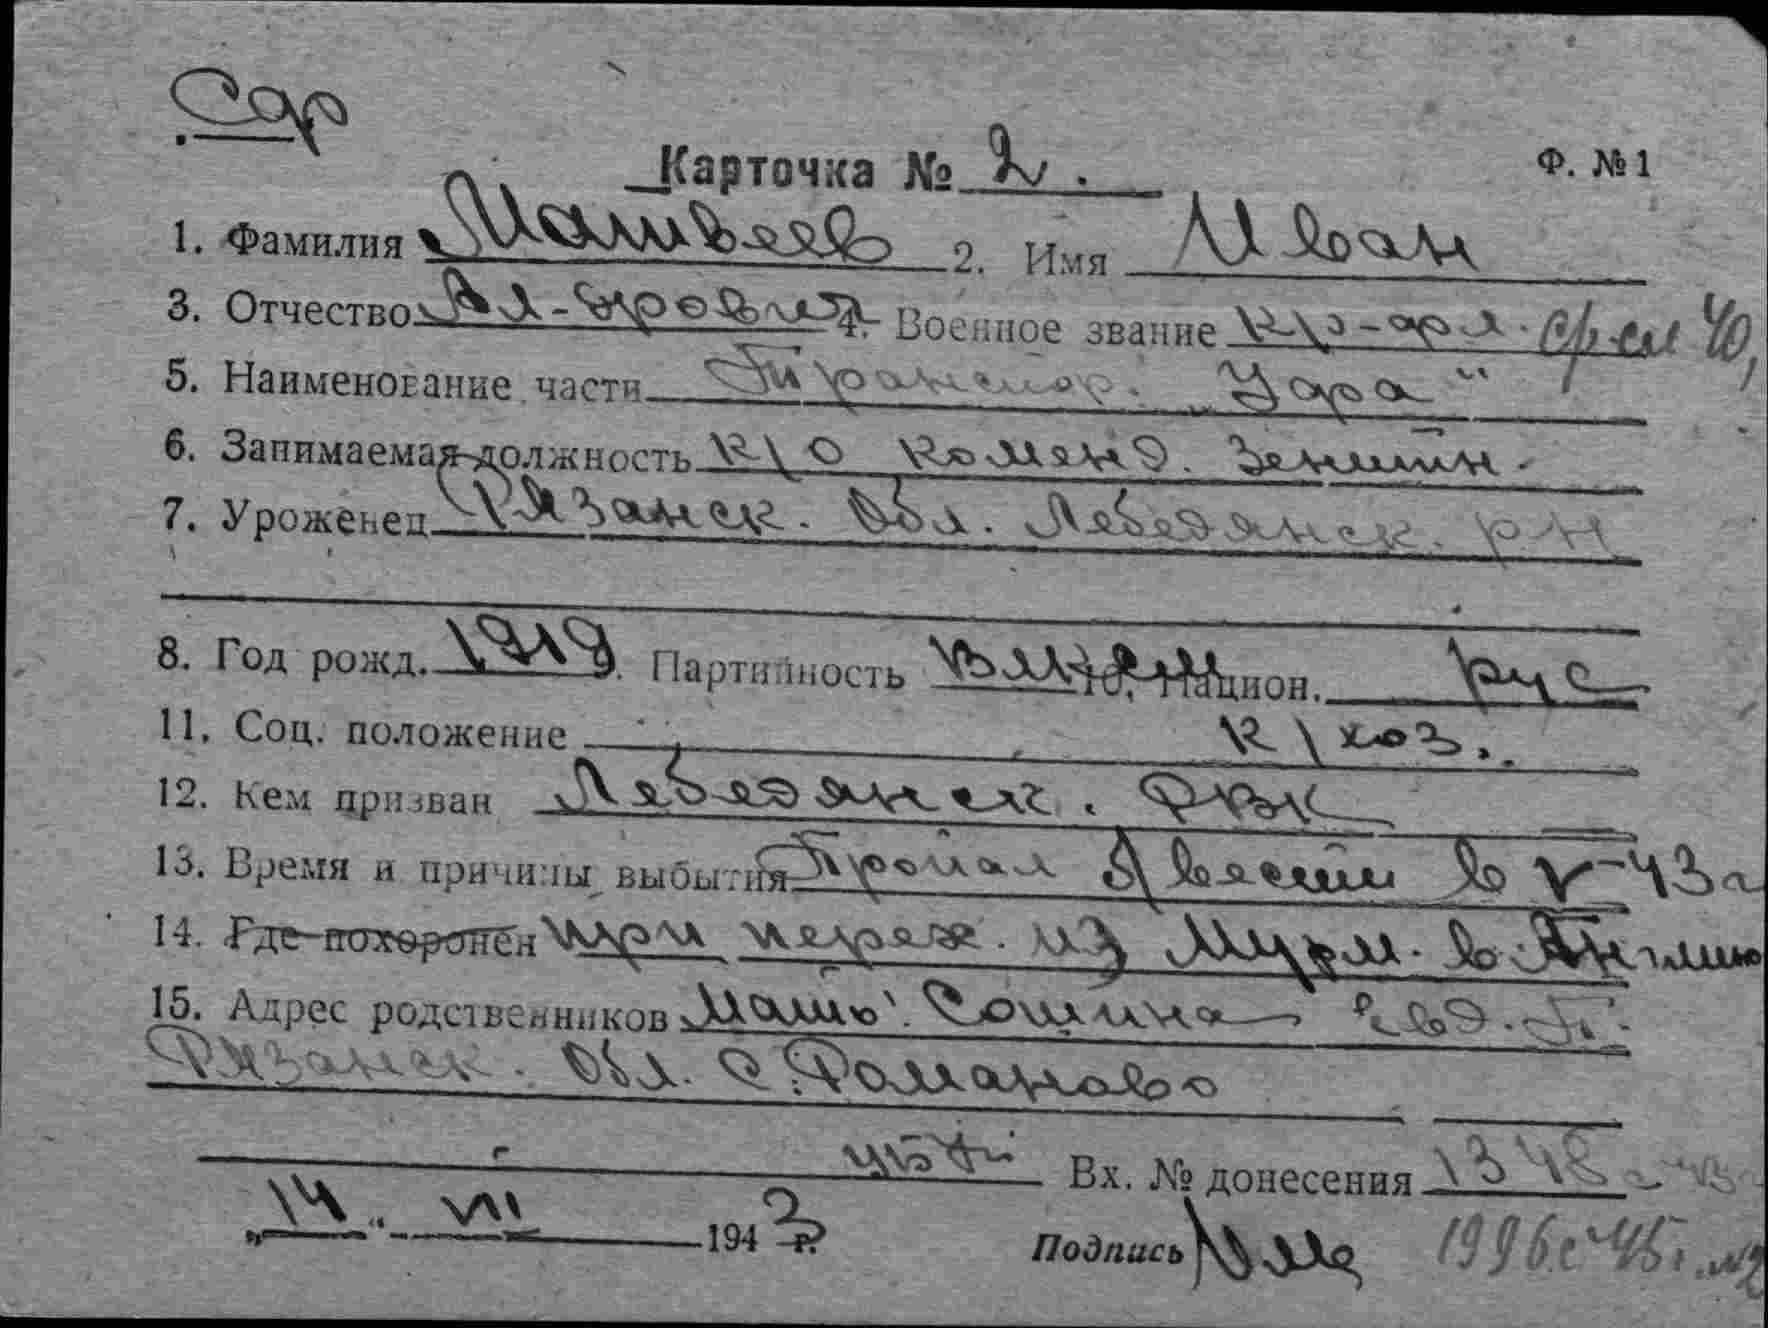 Карточка № 2.
Ф. № 1
1. Фамилия Матвеев 2. Имя Иван
3. Отчество 4. Военное звание кр-арм.
5. Наименование части Транспор. „Уфа"
6. Занимаемая должность к/о команд. Зенитч.
7. Уроженец Рязанск. обл. Лебедянск. р-н
8. Год рожд. 1919 9. Партийность ВЛКСМ 10. Национ. рус
11. Соц. положение к/хоз.
12. Кем призван Лебедянск. РВК
13. Время и причины выбытия Пропал без вести в V-43г
14. Где похоронен при переж. из Мурм. в Англию
15. Адрес родственников Мать
Рязанск. обл. с. Романово
Вх. № донесения 1348с-43
„14" VII 1943 г.
Подпись
1996с-45г.